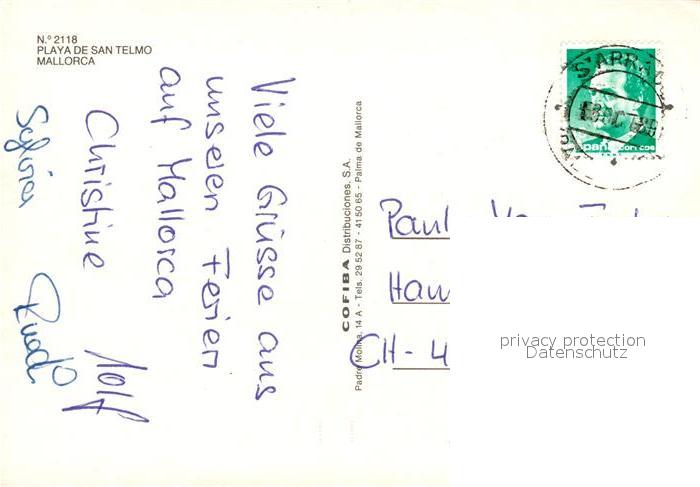 N.º 2118
PLAYA DE SAN TELMO
MALLORCA
Viele Grüsse aus
unseren Ferien
auf Mallorca
Christine
Rolf
Sylvia
Ruedi
COFIBA Distribuciones, S.A.
Padre Molina, 14 A - Tels. 29 52 87 - 41 50 65 - Palma de Mallorca
S'ARRA
España correos
Paul
CH - 4
privacy protection
Datenschutz